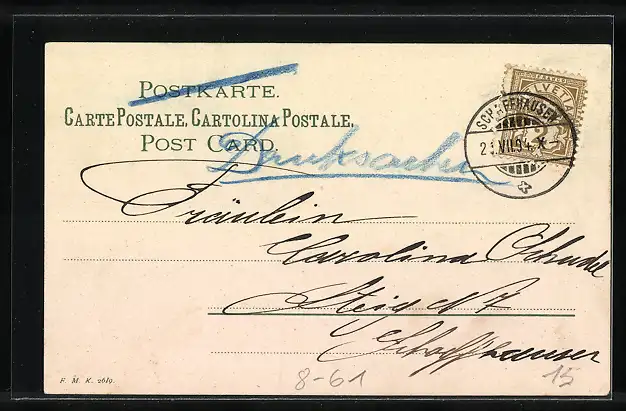 POSTKARTE.
CARTE POSTALE, CARTOLINA POSTALE,
POST CARD.
Drucksache
HELVETIA
SCHAFFHAUSEN
Fräulein
Carolina Schudel
Steig No 7
Schaffhausen
F. M. K. 2619.
8-61
15